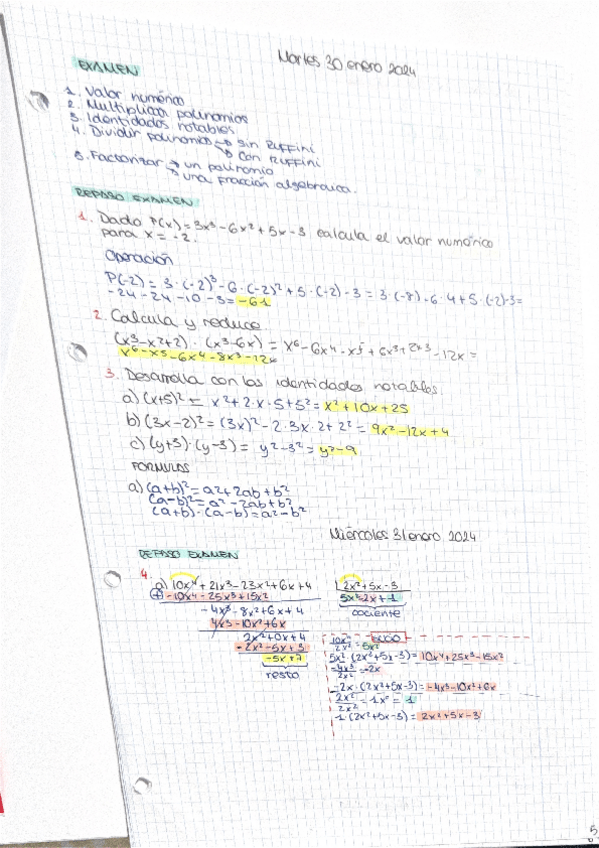 Martes 30 enero 2024
EXAMEN
1. Valor numérico
2. Multiplicar polinomios
3. Identidades notables
4. Dividir polinomios → sin Ruffini
→ con Ruffini
5. Factorizar → un polinomio
→ una fracción algebraica.
REPASO EXAMEN
1. Dado P(x) = 3x³ - 6x² + 5x - 3 calcula el valor numérico
para x = -2.
Operación
P(-2) = 3·(-2)³ - 6·(-2)² + 5·(-2) - 3 = 3·(-8) - 6·4 + 5·(-2) - 3 =
-24 - 24 - 10 - 3 = -61
2. Calcula y reduce.
(x³ - x² + 2) · (x³ - 6x) = x⁶ - 6x⁴ - x⁵ + 6x³ + 2x³ - 12x =
x⁶ - x⁵ - 6x⁴ - 8x³ - 12x
3. Desarrolla con las identidades notables.
a) (x+5)² = x² + 2·x·5 + 5² = x² + 10x + 25
b) (3x-2)² = (3x)² - 2·3x·2 + 2² = 9x² - 12x + 4
c) (y+3)·(y-3) = y² - 3² = y² - 9
FORMULAS
a) (a+b)² = a² + 2ab + b²
(a-b)² = a² - 2ab + b²
(a+b)·(a-b) = a² - b²
Miércoles 31 enero 2024
REPASO EXAMEN
4.
a) 10x⁴ + 21x³ - 23x² + 6x + 4 | 2x² + 5x - 3
-10x⁴ - 25x³ + 15x² 5x² - 2x + 1
-4x³ - 8x² + 6x + 4 cociente
4x³ - 10x² + 6x
2x² + 0x + 4
-2x² - 5x + 3
-5x + 7
resto
10x⁴/2x² = 5x²
5x²·(2x² + 5x - 3) = 10x⁴ + 25x³ - 15x²
-4x³/2x² = -2x
-2x·(2x² + 5x - 3) = -4x³ - 10x² + 6x
2x²/2x² = 1x⁰ = 1
1·(2x² + 5x - 3) = 2x² + 5x - 3